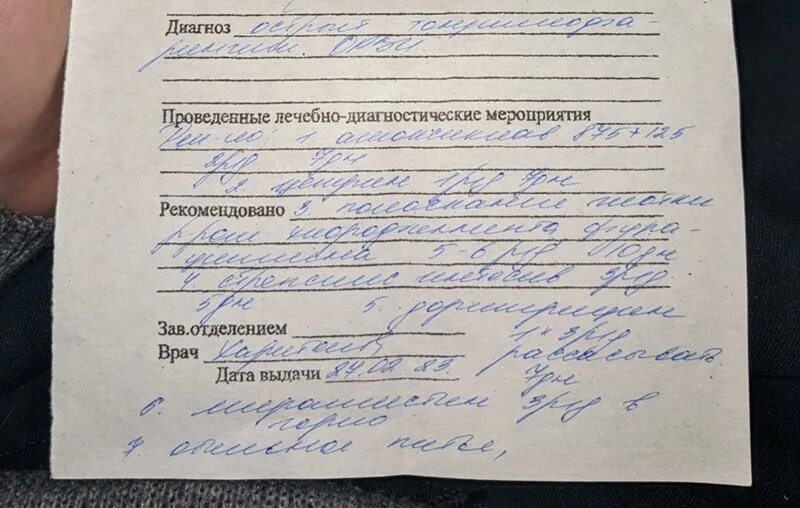 Диагноз острый тонзиллофа-
рингит. ОРВИ.
Проведенные лечебно-диагностические мероприятия
Рек-но: 1. амоксиклав 875+125
2р/д 7дн
2. цетрин 1р/д 7дн
Рекомендовано 3. полоскание глотки
р-ром фура-
цилина 5-6 р/д 10дн
4. стрепсилс интенсив 3р/д
5дн 5.
Зав.отделением 1т 3р/д
Врач рассасывать
Дата выдачи 27.02.23. 7дн
6. мирамистин 3р/д в
горло
7. обильное питье,